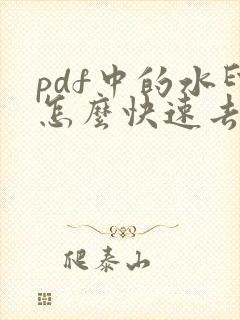 pdf中的水印
怎麼快速去
爬泰山